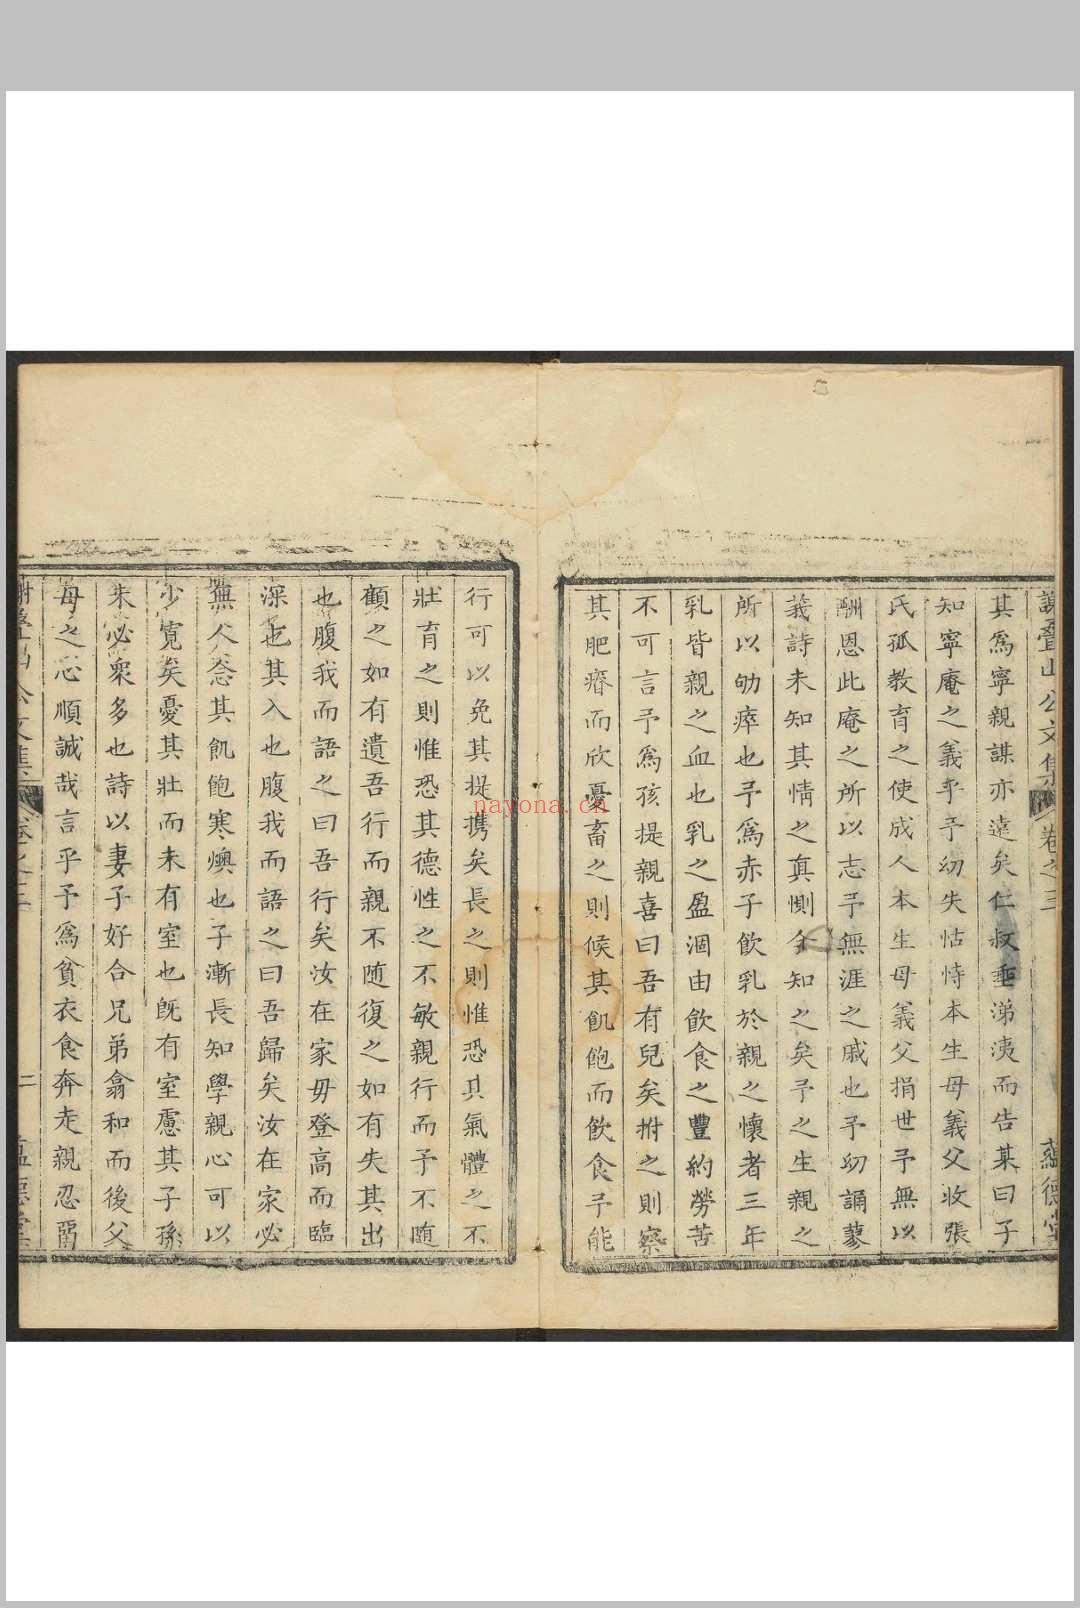 謝疊山公文集 卷之三 蘊德堂
其爲寧親謀亦遠矣仁叔垂涕洟而告某曰子
知寧庵之義乎予幼失怙恃本生母義父收張
氏孤教育之使成人本生母義父捐世予無以
酬恩此庵之所以志予無涯之戚也予幼誦蓼
莪詩未知其情之真惻今知之矣予之生親之
所以劬瘁也予爲赤子飲乳於親之懷者三年
乳皆親之血也乳之盈涸由飲食之豐約勞苦
不可言予爲孩提親喜曰吾有兒矣拊之則察
其肥瘠而欣憂畜之則候其飢飽而飲食予能
行可以免其提攜矣長之則惟恐其氣體之不
壯育之則惟恐其德性之不敏親行而予不隨
顧之如有遺吾行而親不随復之如有失其出
也腹我而語之曰吾行矣汝在家毋登高而臨
深也其入也腹我而語之曰吾歸矣汝在家必
無人念其飢飽寒燠也子漸長知學親心可以
少寬矣憂其壯而未有室也既有室慮其子孫
未必衆多也詩以妻子好合兄弟翕和而後父
母之心順誠哉言乎予爲貧衣食奔走親忍
公文集 卷之三 二
nayona.cn